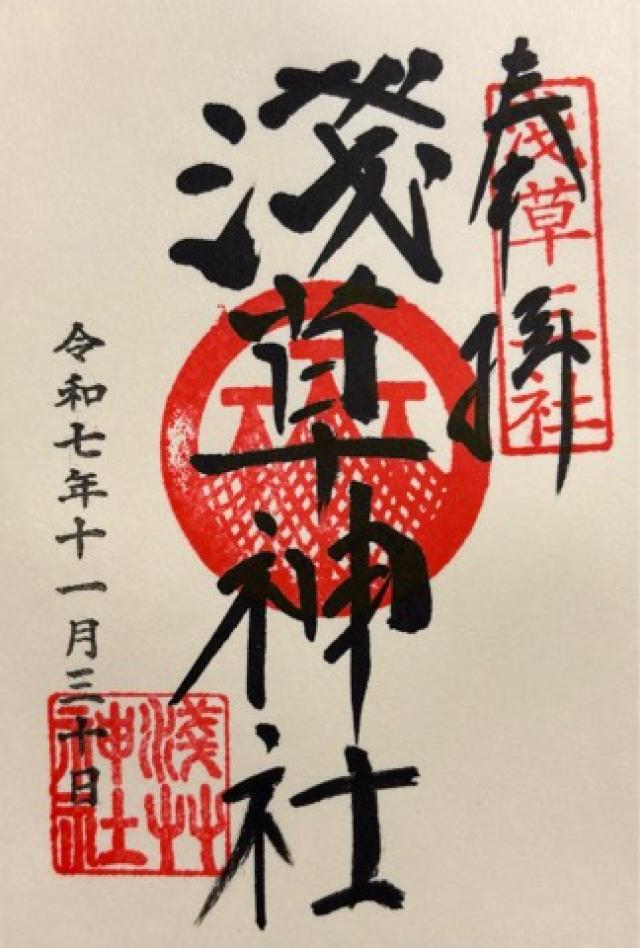 奉拝
浅草三社
淺草神社
令和七年十一月三十日
淺草
神社